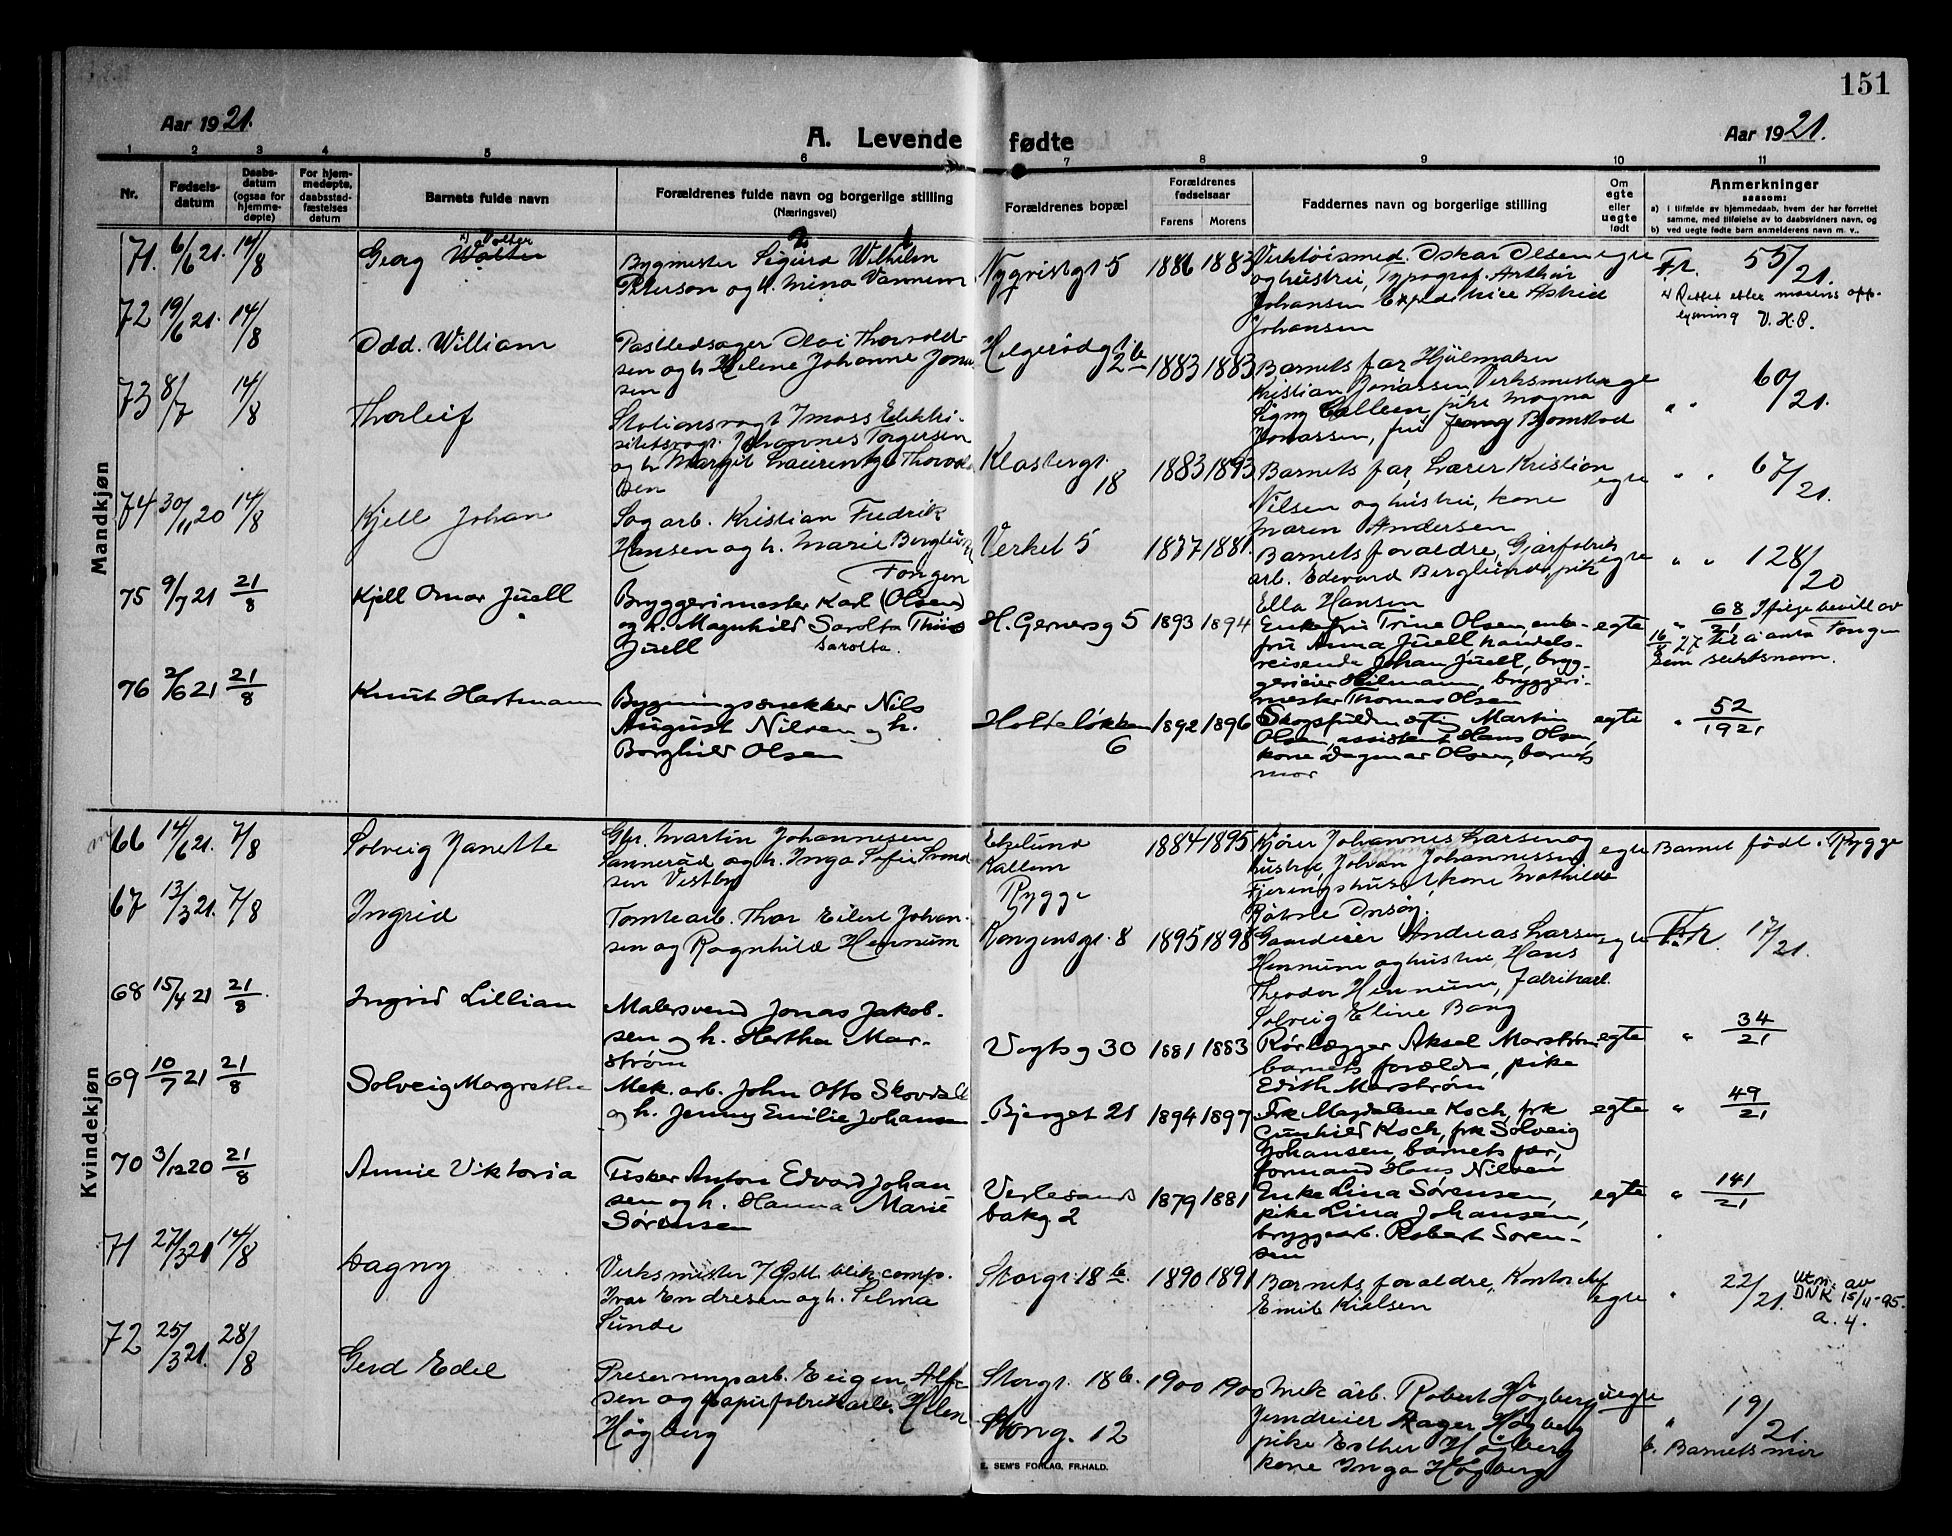 151
Aar 1921.
A. Levende fødte
Aar 1921.
1 2 3 4 5 6 7 8 9 10 11
Nr.
Fødsels-
datum
Daabs-
datum
(ogsaa for
hjemme-
døpte)
For hjem-
medøpte,
daabsstad-
fæstelses
datum
Barnets fulde navn
Forældrenes fulde navn og borgerlige stilling
(Næringsvei)
Forældrenes bopæl
Forældrenes
fødselsaar
Farens Morens
Faddernes navn og borgerlige stilling
Om
egte
eller
uegte
født
Anmerkninger
saasom:
a) i tilfælde av hjemmedaab, hvem der har forrettet
samme, med tilføielse av to daabsvidners navn, og
b) ved uegte fødte barn anmelderens navn m. v..
Mandkjøn
71. 6/6 21. 14/8
Georg Walter
Bygmester Sigurd Wilhelm
Peterson og h. Mina
Nyqvistgt 5
1886 1883
Oskar Olsen
og hustru, Typograf. Arthur
Johansen Astrid
Johansen
egte
Fr. 55/21.
V.H.P.
72 19/6 21. 14/8
Odd. William
Helene Johanne
sen
Helgerødgt
2b
1883 1883
Barnets far
Kristian Jonassen Verksmester
Signy pike Magna
Jonassen, frk Bjørnstad
egte
" " 60/21.
73 8/7 14/8
Thorleif
Johannes Torgersen
og h. Margit
sen
Klostergt.
18
1883 1893
Barnets far, Lærer Kristian
Nilsen og hustru, kone
Maren Andersen
egte
" " 67/21.
74 30/11 20 14/8
Kjell Johan
Sagarb. Kristian Fredrik
Hansen og h. Marie Berglund
Verket 5
1877 1881.
Barnets forældre,
arb. Edevard Berglund, pike
Ella Hansen
egte
" " 128/20
75 9/7 21 21/8
Kjell Omar Juell
Fongen
Bryggerimester Karl (Olsen)
og h. Magnhild Sarolta Thiis
Juell sarolta.
H. Gernersg 5
1893 1894
Enkefru Trine Olsen, enke-
fru Anna Juell, handels-
reisende Johan Juell, bryg-
gerieier Hilmann, bryggeri-
mester Thomas Olsen
egte
" 68/21 Ifølge bevill. av
16/8 27 til å anta Fongen
som slektsnavn.
76 2/6 21 21/8
Knut Hartmann
Bygningssnekker Nils
August Nilsen og h.
Borghild Olsen
Holteløkken
6
1892 1896
Martin
Olsen, assistent Hans Olsen,
kone Dagmar Olsen, barnets
mor
egte
" 52/1921
Kvindekjøn
66 14/6 21. 7/8
Solveig Janette
Martin Johannesen
Sannerød og h. Inga Sofie Svend
sen Vestby
Ekelund
Kallum
Rygge
1884 1895
Kjører Johannes Larsen og
hustru, Johan Johannessen
kone Mathilde
egte
Barnet født i Rygge
67 13/3 21. 7/8
Ingrid
Tomtearb. Thor Eilert Johan-
sen og Ragnhild Hennum
Kongensgt. 8
1895 1898
Gaardeier Andreas Larsen
Hennum og hustru, Hans
Theodor Hennum, fabrikarb.
Solveig Eline Bang
egte
Fr. 17/21.
68 15/4 21 21/8.
Ingrid Lillian
Malersvend Jonas Jakob-
sen og h. Hertha Mar-
strøm
Vogtsg 30
1881 1883
Rørlægger Aksel Marstrøm
barnets forældre, pike
Edith Marstrøm
egte
" 34/21
69 10/7 21 21/8
Solveig Margrethe
Mek. arb. John Otto Skovdahl
og h. Jenny Emilie Johansen
Bjerget 21
1894 1897
Frk Magdalene Koch, frk
Gunhild Koch, frk Solveig
Johansen, barnets far,
formand Hans Nilsen
egte
" 49/21
70 3/12 20 21/8
Annie Viktoria
Fisker Anton Edvard Johan
sen og h. Hanna Marie
Sørensen
Verlesands
bakg 2
1879 1881
Enke Lina Sørensen,
pike Lina Johansen,
bryggearb. Robert Søren-
sen
egte
" 141/21
71 27/3 21 14/8
Dagny
Verksmester
Ivar Endresen og h. Selma
Sunde
Storgt. 18b.
1890 1891
Barnets forældre, Kontorchef
Emil Kielsen
egte
" 22/21. Utm. av
DNK 15/11-95.
a. 4.
72 25/3 21. 28/8
Gerd Edel
Preserveringsarb. Eugen Alf-
sen og papirfabrikarb. Helen
Høgberg
Storgt. 18b.
Storg. 12
1900 1900
Mek arb. Robert Høgberg
Jerndreier Aager Høgberg
pike Esther Høgberg
kone Inga Høgberg
uegte
" 19/21.
b. Barnets mor
E. SEM'S FORLAG, FR.HALD.